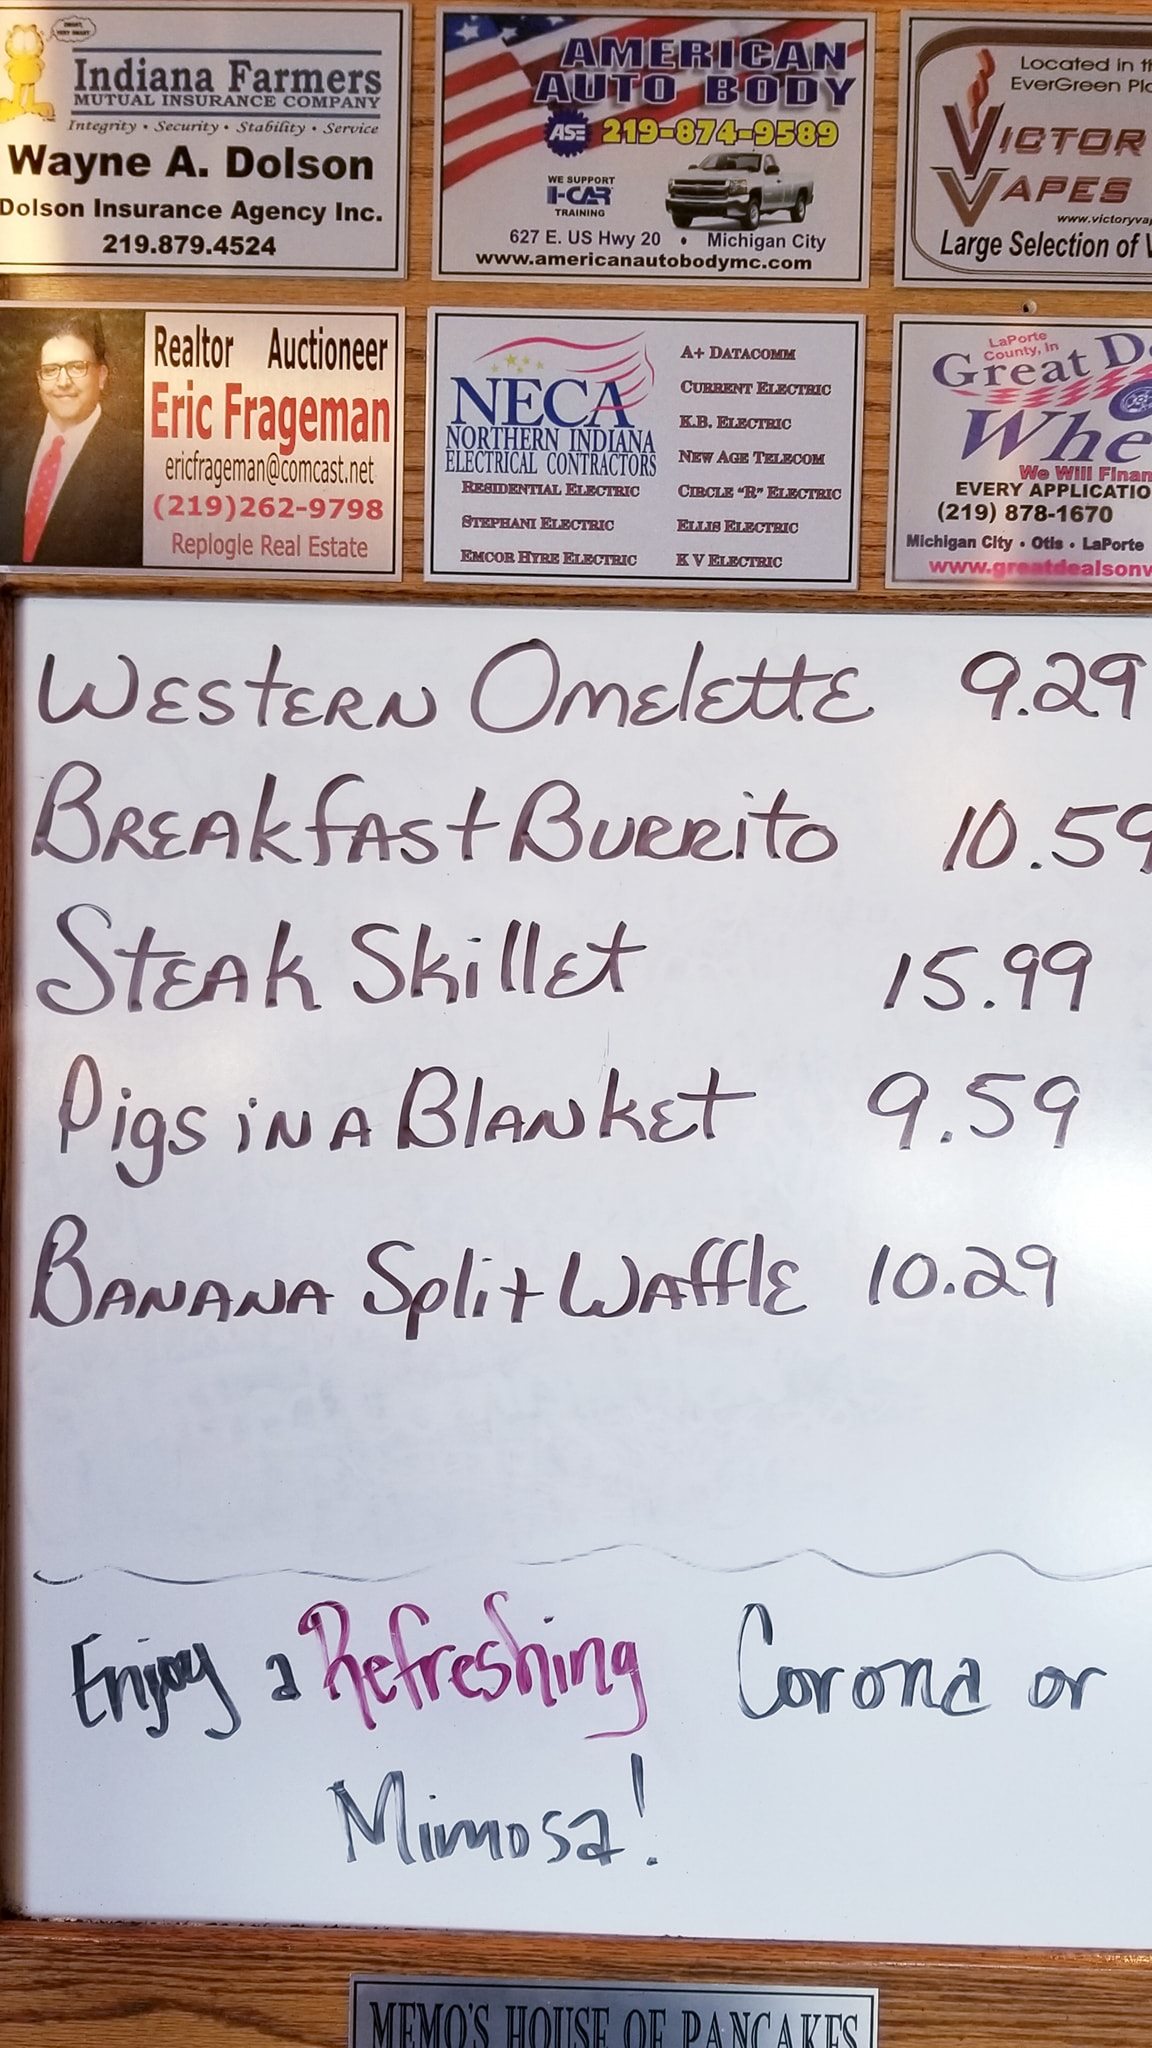 SMART, VERY SMART
Indiana Farmers
MUTUAL INSURANCE COMPANY
Integrity • Security • Stability • Service
Wayne A. Dolson
Dolson Insurance Agency Inc.
219.879.4524
AMERICAN
AUTO BODY
ASE 219-874-9589
WE SUPPORT
I-CAR
TRAINING
627 E. US Hwy 20 • Michigan City
www.americanautobodymc.com
Located in th
EverGreen Pla
VICTOR
VAPES
www.victoryvap
Large Selection of V
Realtor Auctioneer
Eric Frageman
ericfrageman@comcast.net
(219)262-9798
Replogle Real Estate
NECA
NORTHERN INDIANA
ELECTRICAL CONTRACTORS
RESIDENTIAL ELECTRIC
STEPHANI ELECTRIC
EMCOR HYRE ELECTRIC
A+ DATACOMM
CURRENT ELECTRIC
K.B. ELECTRIC
NEW AGE TELECOM
CIRCLE "R" ELECTRIC
ELLIS ELECTRIC
K V ELECTRIC
LaPorte
County, In
Great De
Whe
We Will Finan
EVERY APPLICATIO
(219) 878-1670
Michigan City • Otis • LaPorte
www.greatdealsonw
WESTERN OMELETTE 9.29
BREAKFAST BURRITO 10.59
STEAK SKILLET 15.99
Pigs in A BLANKET 9.59
BANANA Split WAFFLE 10.29
Enjoy a Refreshing Corona or
Mimosa!
MEMO'S HOUSE OF PANCAKES